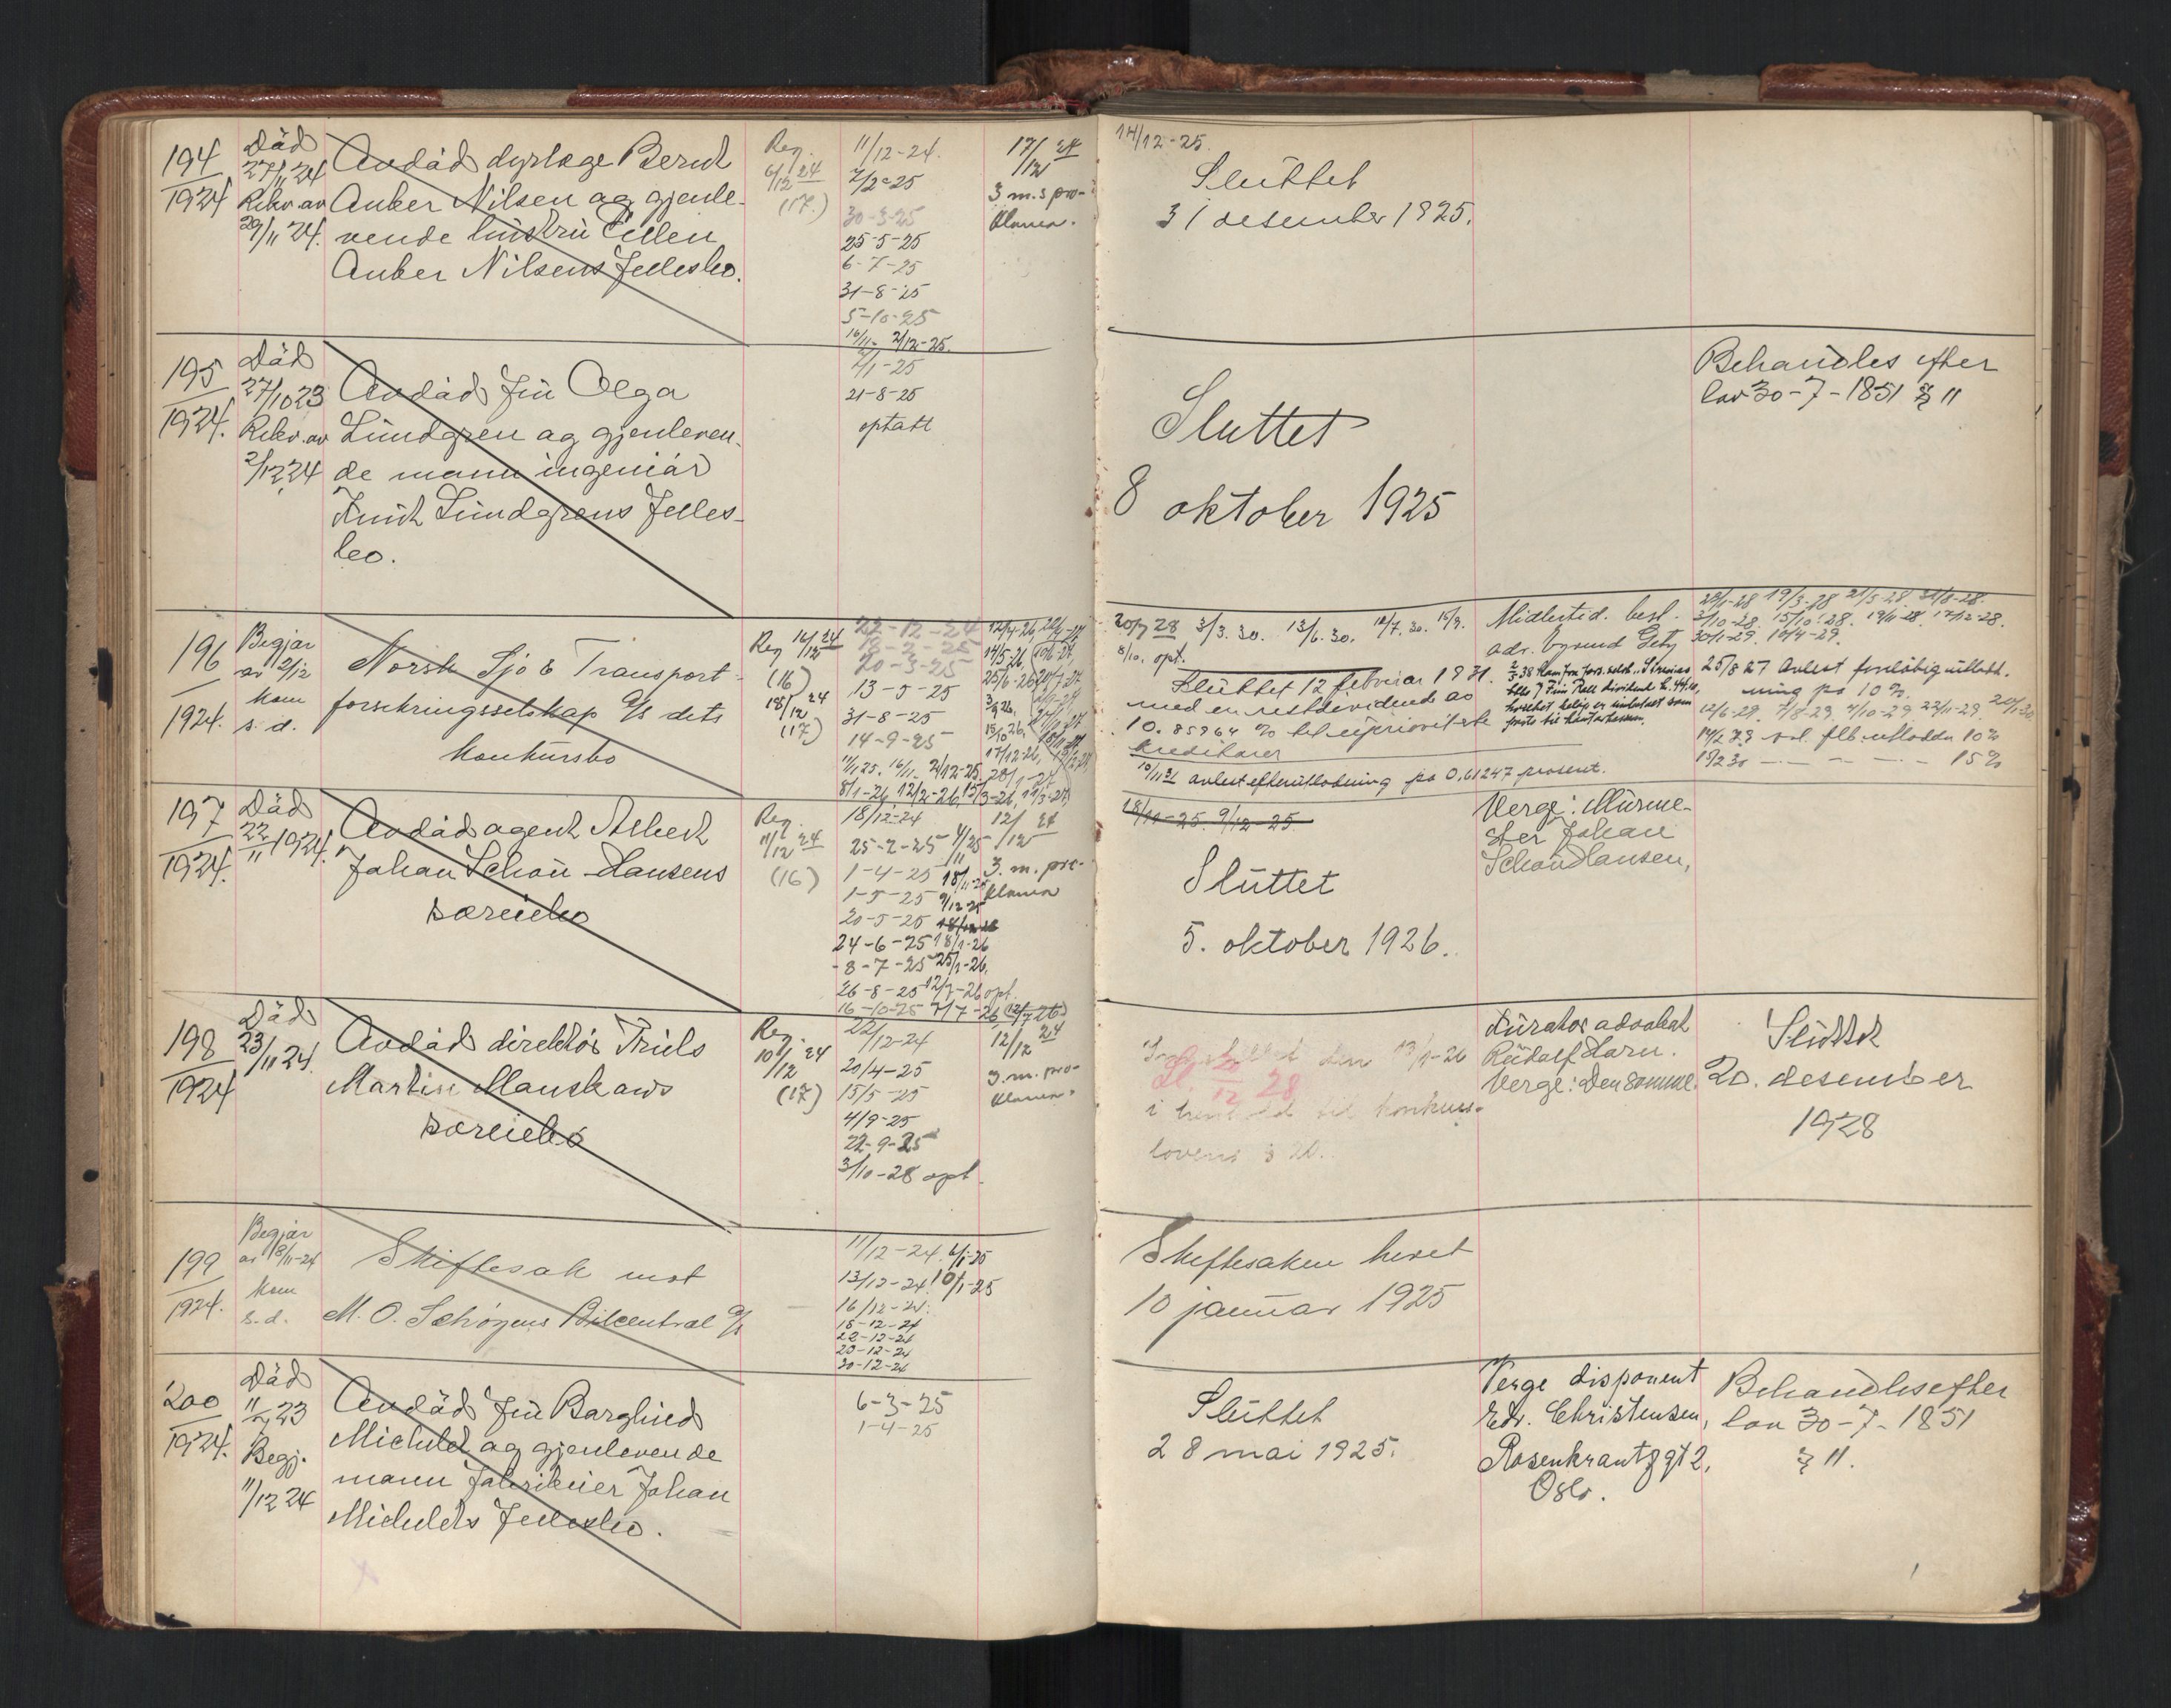 194
1924
Död
27/11 24
Rekv. av
29/11 24.
Avdöd dyrlæge Bernt
Anker Nilsen og gjenle-
vende hustru Ellen
Anker Nilsens Fellesbo.
Reg.
6/12 24
(17.)
11/12-24.
7/2-25
30-3-25
25-5-25
6-7-25
31-8-25
5-10-25
16/11- 2/12-25.
17/12 24
3 m.s pro-
klama.
14/12-25.
Sluttet
31 desember 1925.
195
1924.
Död
27/10 23
Rekv. av
2/12 24
Avdöd fru Olga
Lundgren og gjenleven-
de mann ingeniör
Knut Lundgrens Felles-
bo.
2/1-25
21-8-25
optatt
Sluttet
8 oktober 1925
Behandles efter
lov 30-7-1851 § 11
196
1924.
Begjær
av 2/12
kom
s. d.
Norsk Sjø & Transport-
forsikringsselskap A/s dets
konkursbo
Reg 16/12 24
(16)
18/12 24
(17)
22-12-24
18-2-25
20-3-25
13-5-25
31-8-25
14-9-25
12/4-26,
14/5-26,
17/12-26,
20/7 28 3/3. 30. 13/6. 30. 12/7. 30. 15/9.
8/10. opt.
Sluttet 12 februar 1931.
med en restdividende av
10.85964 % til uprioriterte
kreditorer
10/11 31 avlest efterutlodning på 0,61247 prosent.
Midlertid. best.
adv. Øyvind Getz
15/10-28. 19/11-28. 17/12-28.
30/1-29. 16/4-29.
25/8 27 Avlest foreløbig utlodd-
ning på 10 %.
12/6-29. 7/8-29. 4/10-29. 22/11-29. 20/1-30
15 %
197
1924.
Död
22/11 1924.
Avdöd agent Albert
Johan Schou-Hansens
særeiebo
Reg.
11/12 24
(16)
18/12-24
25-2-25
1-4-25
1-5-25
20-5-25
24-6-25 18/1-26
8-7-25 25/1-26.
26-8-25 12/7-26 opt.
16-10-25
12/12 24
3. m. pro-
klama
18/11-25. 9/12-25.
Sluttet
5. oktober 1926.
Verge: Murme-
ster Johan
Schou Hansen.
198
1924
Död
23/11 24.
Avdöd direktör Truls
Martin Manskaws
særeiebo
Reg.
10/12 24
(17)
22/12-24
20/4-25
15/5-25
4/9-25
22-9-25
3/10-28 opt.
12/12 24
3. m. pro-
klama.
Sl. 20/12 28
i henhold til konkurs-
lovens § 20.
Kurator advokat
Rudolf Harn.
Verge: Den samme.
Sluttet
20. desember
1928
199
1924.
Begjær
av 18/11-24
kom
s. d.
Skiftesak mot
M. O. Schøyens Bilcentral A/s
11/12-24. 6/1-25
13/12-24. 10/1-25
16/12-24.
18-12-24
22-12-24
23-12-24
30-12-24
Skiftesaken hevet
10 januar 1925
200
1924.
Död
11/2 23
Begj.
11/12 24
Avdöd fru Borghild
Michelet og gjenlevende
mann fabrikeier Johan
Michelets Fellesbo.
6-3-25
1-4-25
Sluttet
28 mai 1925.
Verge disponent
Edv. Christensen,
Rosenkrantzgt 2,
Oslo.
Behandles efter
lov 30-7-1851
§ 11.